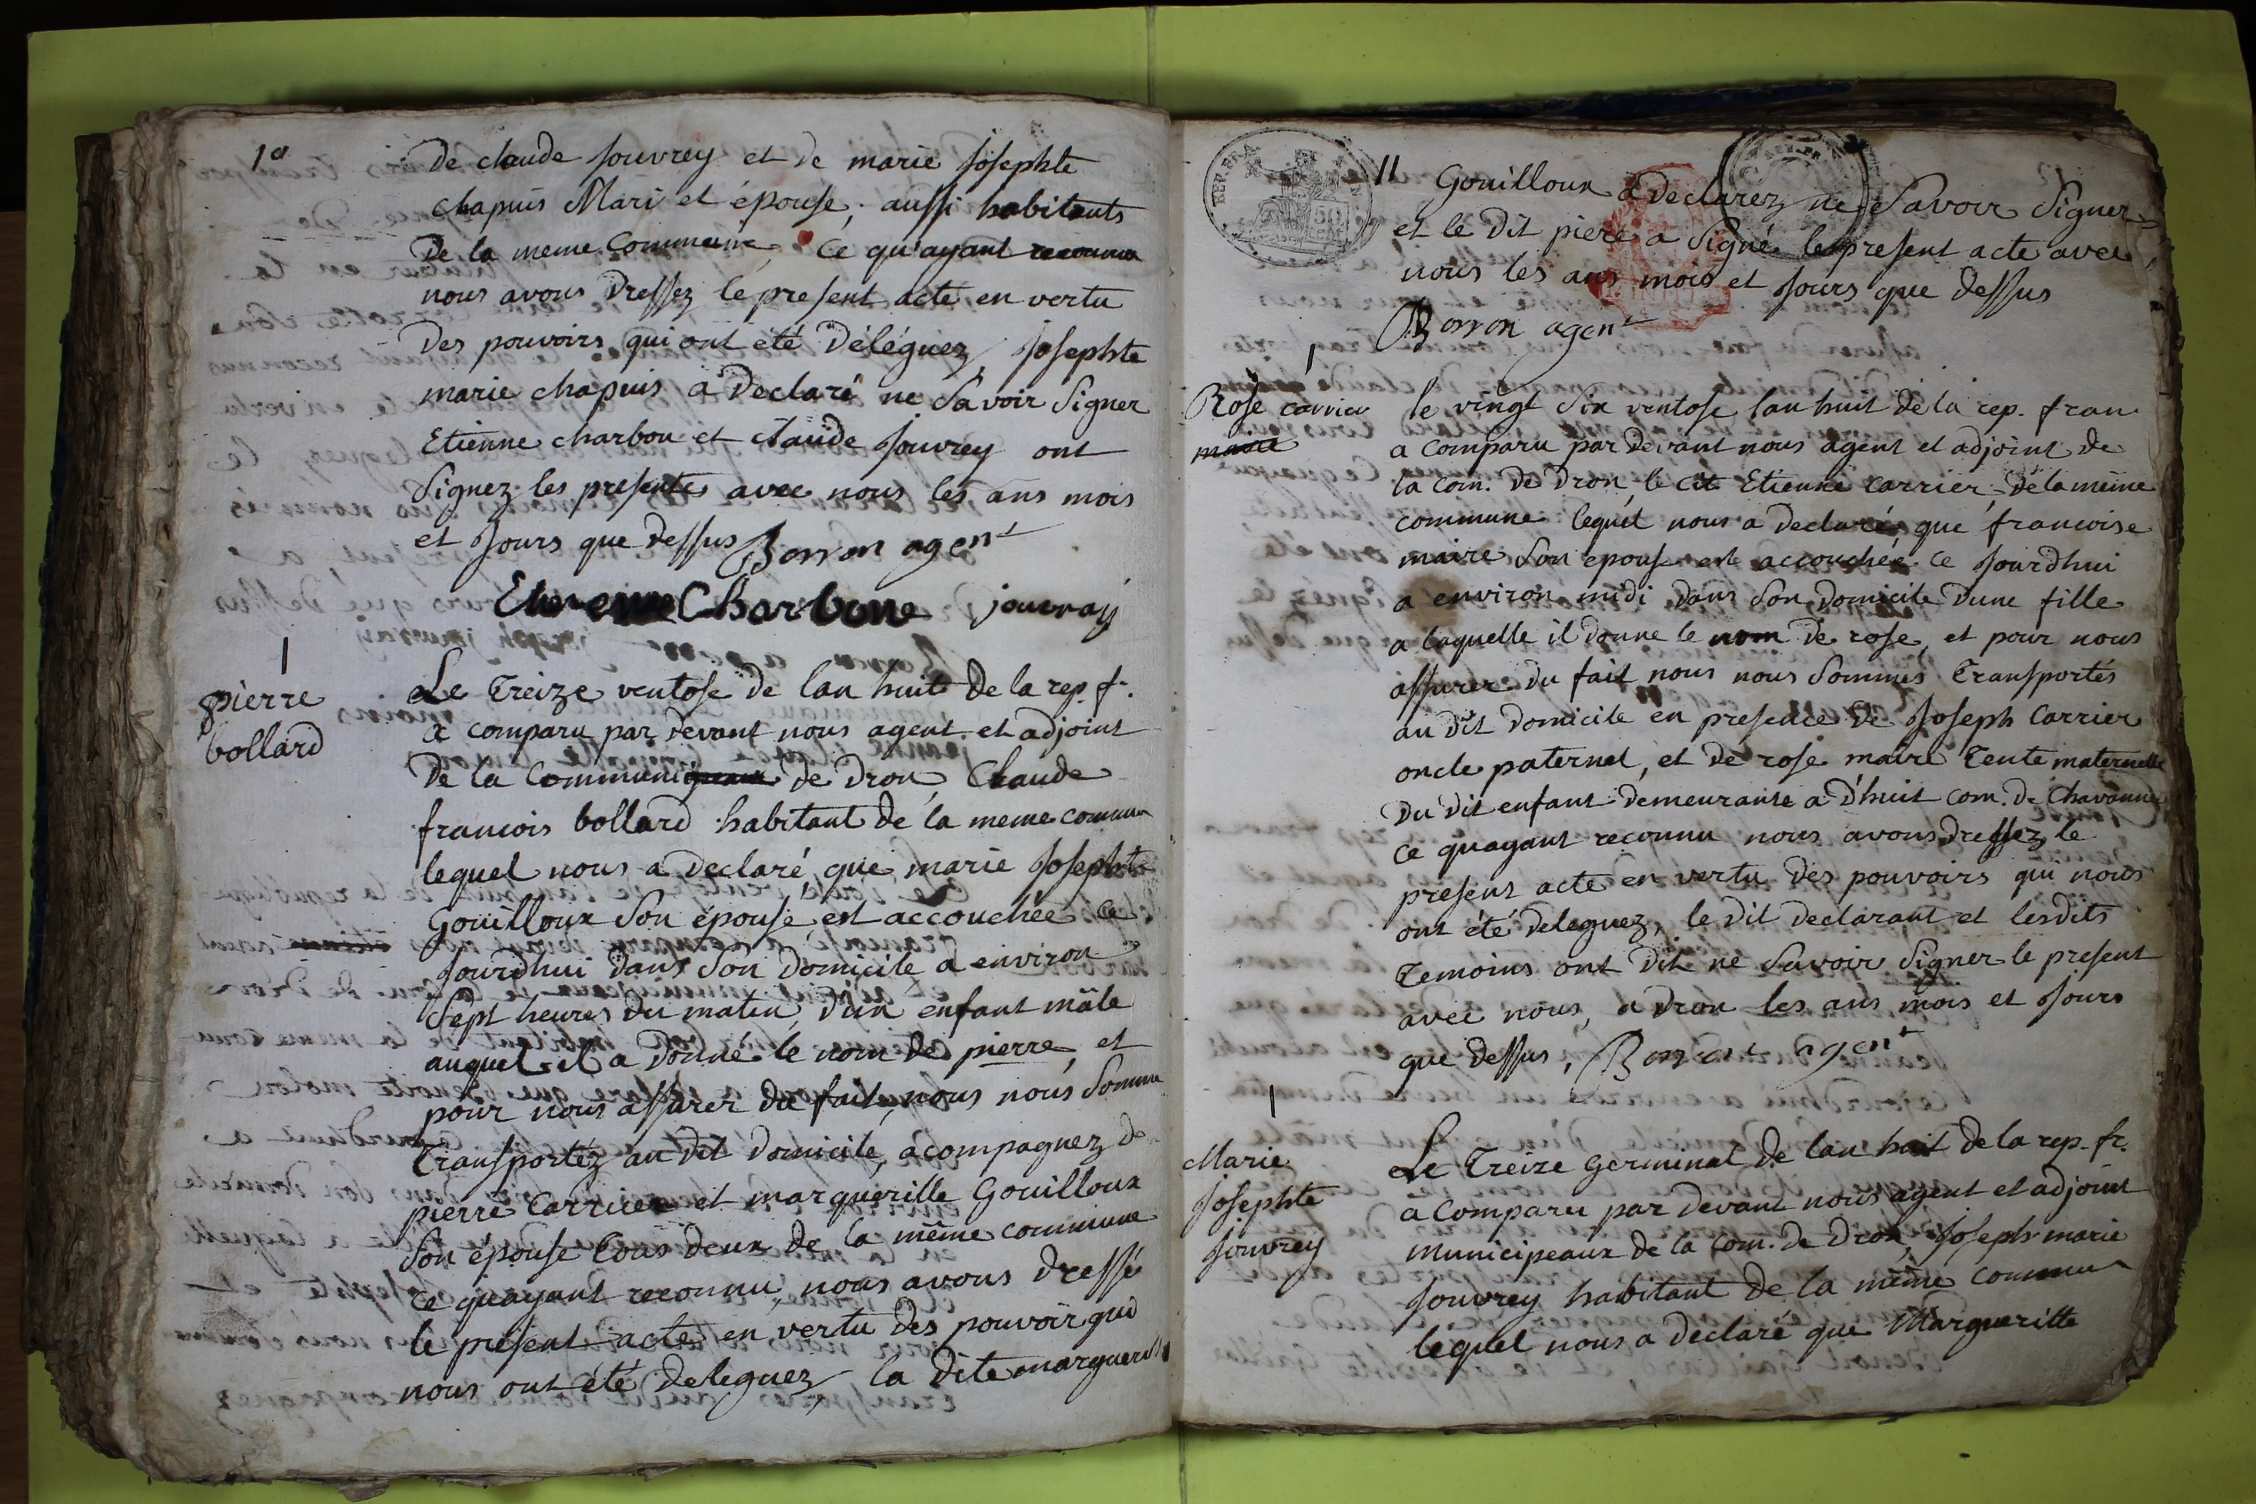 10
De claude Jouvrey et de marie Josephte
chapuis Mari et épouse, aussi habitants
De la meme Commune, Ce qu'ayant reconnu
nous avons Dressez le present acte en vertu
Des pouvoirs qui ont été Déléguez, Josephte
marie chapuis a Declaré ne Savoir Signer
Etienne charbon et claude Jouvrey ont
Signez les presentes avec nous les ans mois
et Jours que dessus Borron agent
Etienne Charbone jouvray
1
pierre
bollard
Le Treize ventose de lan huit de la rep. f.
a comparu par devant nous agent et adjoint
De la Commune de dron, Claude
francois bollard habitant de la meme commun
lequel nous a declaré que marie Josephte
Gouilloux Son épouse est accouchée Ce
Jourdhui dans Son Domicile a environ
Sept heures du matin, d'un enfant mâle
auquel il a donné le nom de pierre, et
pour nous assurer du fait, nous nous Somme
Transportéz au dit domicile, acompagnez de
pierre Carrier et marguerille Gouilloux
Son épouse Tous deux de la même commune
Ce quayant reconnu, nous avons dressé
le present acte en vertu des pouvoir qui
nous ont été deleguez, la dite marguerille
REP. FRA.
50
11
Gouilloux a Declarez ne Savoir Signer
et le Dit piere a Signé le present acte avec
nous les ans mois et Jours que dessus
Borron agent
1
Rose carrier
le vingt Six ventose lan huit de la rep. fran
a comparu par devant nous agent et adjoint de
la com. De Dron, le Cit Etienne Carrier, De la même
commune lequel nous a declaré que francoise
maire Son epouse est accouchée ce Jourdhui
a environ midi dans Son Domicile Dune fille
a laquelle il donne le nom de rose, et pour nous
assurer du fait nous nous Sommes Transportés
au dit domicile en presence de Joseph Carrier
oncle paternel, et de rose maire Tente maternelle
Du dit enfant demeurante a d'huit com. de Chavanne
Ce quayant reconnu nous avons dressez le
present acte en vertu des pouvoirs qui nous
ont été deleguez, le dit declarant et lesdits
Temoins ont dit ne Savoir Signer le present
avec nous, a dron les ans mois et Jours
que dessus, Borron agent
1
Marie
Josephte
Jouvrey
Le Treize Germinal de lan huit de la rep. fr.
a comparu par devant nous agent et adjoint
municipeaux de la Com. de Dron, Joseph marie
Jouvrey habitant de la même commun
lequel nous a declaré que Marguerille